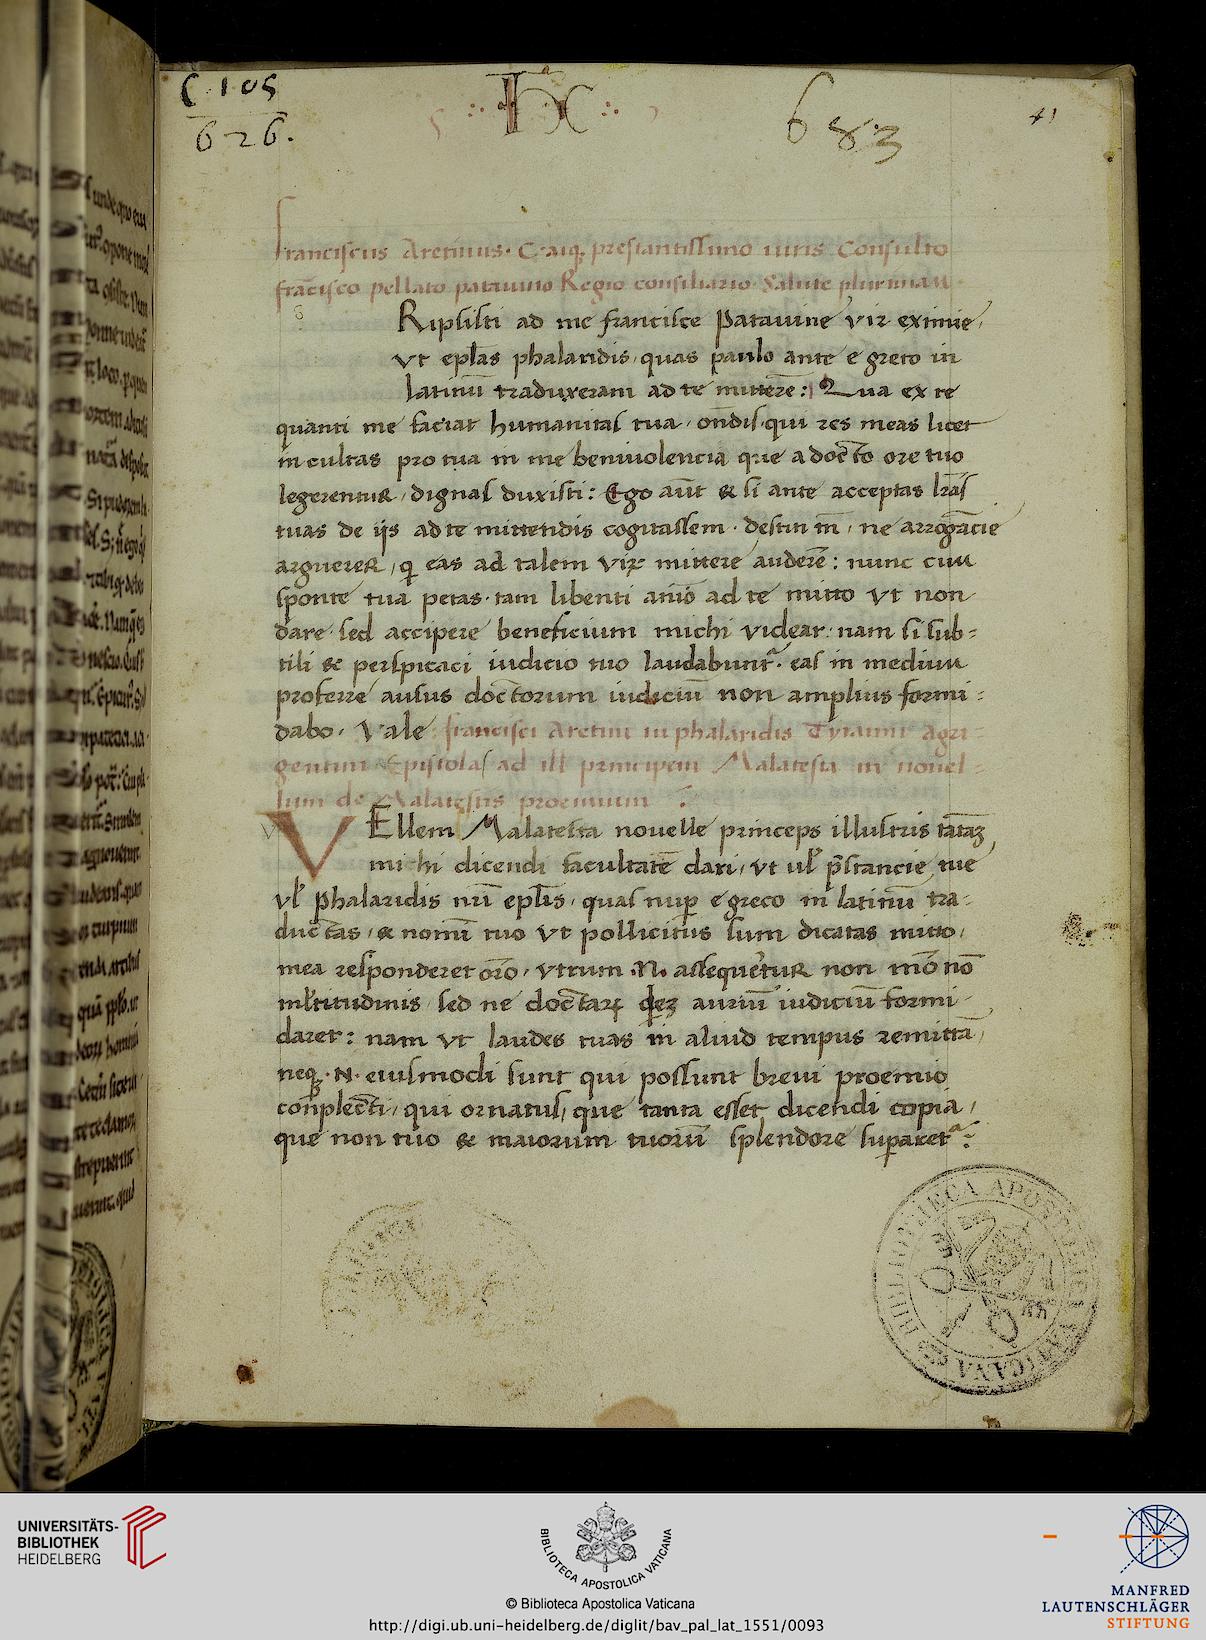 C. 105
626.
683
41
franciscus Aretinus. C. aiq; prestantissimo iuris Consulto
fracisco pellato patauino Regio consiliario. Salute plurimam.
Ripsisti ad me francisce Patavine vir eximie,
vt eplas phalaridis, quas paulo ante e greco in
latinū traduxeram ad te mitterē: Qua ex re
quanti me faciat humanitas tua, ondis, qui res meas licet
incultas pro tua in me benivolencia que a docto ore tuo
legerentur, dignas duxisti: Ego aūt & si ante acceptas lras
tuas de iis ad te mittendis cogitassem. destiti tn, ne arrogācie
arguerer, q eas ad talem vir mittere auderē: nunc cum
sponte tua petas. tam libenti aīo ad te mitto vt non
dare sed accipere beneficium michi videar. nam si sub=
tili & perspicaci iudicio tuo laudabuntr. eas in medium
proferre ausus doctorum iudiciū non amplius formi=
dabo. Vale francisci Aretini in phalaridis Tyranni Agri=
gentini Epistolas ad ill principem Malatesta m novel=
lum de Malatestis proemium
VEllem Malatesta novelle princeps illustris tātaz
michi dicendi facultatē dari, vt ul' pstancie tue
vl' phalaridis nri eplis, quas nup e greco in latinū tra=
ductas, & nomī tuo vt pollicitus sum dicatas mitto,
mea responderet oro, vtrum .N. assequeretur non mō nō
ml'titudinis sed ne doctar auriū iudiciū formi=
daret: nam vt laudes tuas in aliud tempus remittā,
neq; .N. eiusmodi sunt qui possunt brevi proemio
conplecti, qui ornatus, que tanta esset dicendi copia,
que non tuo & maiorum tuorū splendore superaret
BIBLIOTHECA APOSTOLICA VATICANA
UNIVERSITÄTS-
BIBLIOTHEK
HEIDELBERG
BIBLIOTECA APOSTOLICA VATICANA
© Biblioteca Apostolica Vaticana
http://digi.ub.uni-heidelberg.de/diglit/bav_pal_lat_1551/0093
MANFRED
LAUTENSCHLÄGER
STIFTUNG